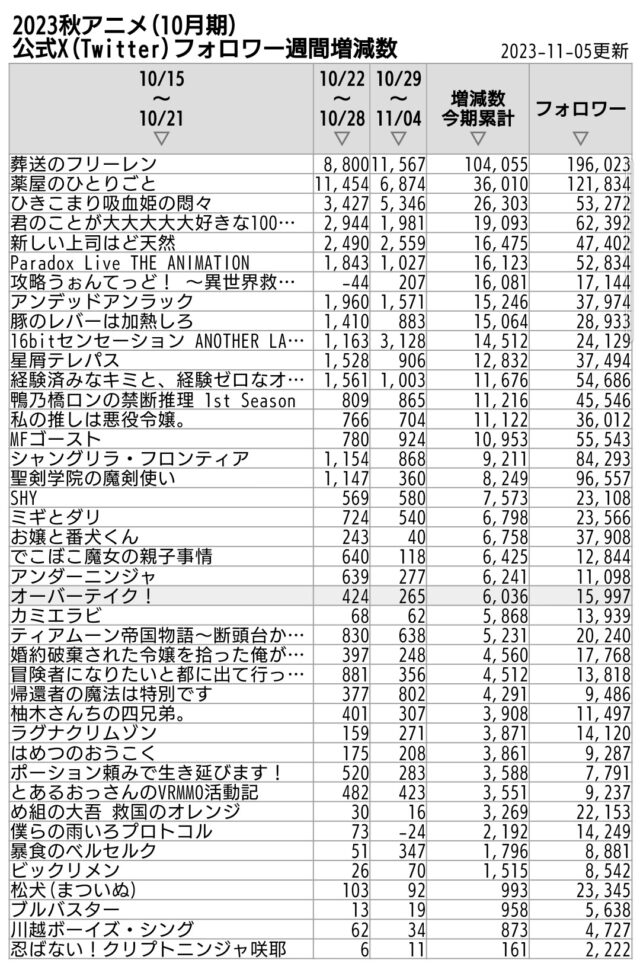 2023秋アニメ(10月期)
公式X(Twitter)フォロワー週間増減数 2023-11-05更新
10/15 10/22 10/29
～ ～ ～ 増減数 フォロワー
10/21 10/28 11/04 今期累計
▽ ▽ ▽ ▽ ▽
葬送のフリーレン 8,800 11,567 104,055 196,023
薬屋のひとりごと 11,454 6,874 36,010 121,834
ひきこまり吸血姫の悶々 3,427 5,346 26,303 53,272
君のことが大大大大大好きな100… 2,944 1,981 19,093 62,392
新しい上司はど天然 2,490 2,559 16,475 47,402
Paradox Live THE ANIMATION 1,843 1,027 16,123 52,834
攻略うぉんてっど！ ～異世界救… -44 207 16,081 17,144
アンデッドアンラック 1,960 1,571 15,246 37,974
豚のレバーは加熱しろ 1,410 883 15,064 28,933
16bitセンセーション ANOTHER LA… 1,163 3,128 14,512 24,129
星屑テレパス 1,528 906 12,832 37,494
経験済みなキミと、経験ゼロなオ… 1,561 1,003 11,676 54,686
鴨乃橋ロンの禁断推理 1st Season 809 865 11,216 45,546
私の推しは悪役令嬢。 766 704 11,122 36,012
MFゴースト 780 924 10,953 55,543
シャングリラ・フロンティア 1,154 868 9,211 84,293
聖剣学院の魔剣使い 1,147 360 8,249 96,557
SHY 569 580 7,573 23,108
ミギとダリ 724 540 6,798 23,566
お嬢と番犬くん 243 40 6,758 37,908
でこぼこ魔女の親子事情 640 118 6,425 12,844
アンダーニンジャ 639 277 6,241 11,098
オーバーテイク！ 424 265 6,036 15,997
カミエラビ 68 62 5,868 13,939
ティアムーン帝国物語～断頭台か… 830 638 5,231 20,240
婚約破棄された令嬢を拾った俺が… 397 248 4,560 17,768
冒険者になりたいと都に出て行っ… 881 356 4,512 13,818
帰還者の魔法は特別です 377 802 4,291 9,486
柚木さんちの四兄弟。 401 307 3,908 11,497
ラグナクリムゾン 159 271 3,871 14,120
はめつのおうこく 175 208 3,861 9,287
ポーション頼みで生き延びます！ 520 283 3,588 7,791
とあるおっさんのVRMMO活動記 482 423 3,551 9,237
め組の大吾 救国のオレンジ 30 16 3,269 22,153
僕らの雨いろプロトコル 73 -24 2,192 14,249
暴食のベルセルク 51 347 1,796 8,881
ビックリメン 26 70 1,515 8,542
松犬(まついぬ) 103 92 993 23,345
ブルバスター 13 19 958 5,638
川越ボーイズ・シング 62 34 873 4,727
忍ばない！クリプトニンジャ咲耶 6 11 161 2,222